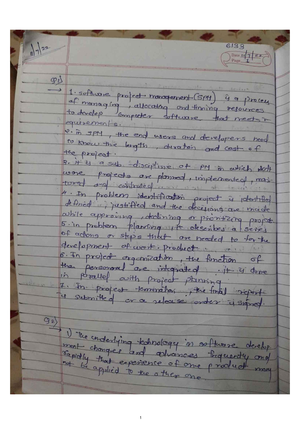 6133
Q1)
→ 1. Software project management (SPM) is a process
of managing, allocating and timing resources
to develop computer software that meets
requirements.
2. in SPM, the end users and developers need
to know the length, duration and cost of
the project.
3. it is a sub-discipline of PM in which soft
ware projects are planned, implemented, moni
tored and
4. In problem identification project is identified
defined, justified and the decisions are made
while appraising, defining or prioritizing projects
5. in problem planning it describes a series
of actions or steps that are needed to for the
development of work product.
6. In project organisation, the function of
the personnel are integrated. it is done
in parallel with project planning
7. in project termination, the final report
is submitted or a release order is signed
1) The underlying technology in software develop
ment changes and advances frequently and
rapidly that experience of one product may
be applied to the other one.
1